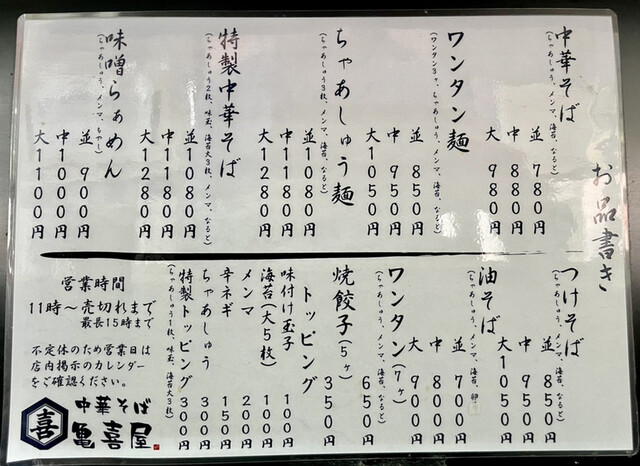 お品書き
中華そば
(ちゃあしゅう、メンマ、海苔、なると)
並 780円
中 880円
大 980円
ワンタン麺
(ワンタン3ヶ、ちゃあしゅう、メンマ、海苔、なると)
並 850円
中 950円
大 1050円
ちゃあしゅう麺
(ちゃあしゅう3枚、メンマ、海苔、なると)
並 1080円
中 1180円
大 1280円
特製中華そば
(ちゃあしゅう2枚、味玉、海苔大3枚、メンマ、なると)
並 1080円
中 1180円
大 1280円
味噌らぁめん
(ちゃあしゅう、メンマ、もやし)
並 900円
中 1000円
大 1100円
つけそば
(ちゃあしゅう、メンマ、海苔、なると)
並 850円
中 950円
大 1050円
油そば
(ちゃあしゅう、メンマ、海苔、卵)
並 700円
中 800円
大 900円
ワンタン(7ヶ)
(ちゃあしゅう、メンマ、海苔、なると)
650円
焼餃子(5ヶ)
350円
トッピング
味付け玉子 100円
海苔(大5枚) 100円
メンマ 200円
辛ネギ 150円
ちゃあしゅう 300円
特製トッピング 300円
(ちゃあしゅう1枚、味玉、海苔大3枚)
営業時間
11時〜売切れまで
最長15時まで
不定休のため営業日は
店内掲示のカレンダー
をご確認ください。
喜
中華そば
亀喜屋